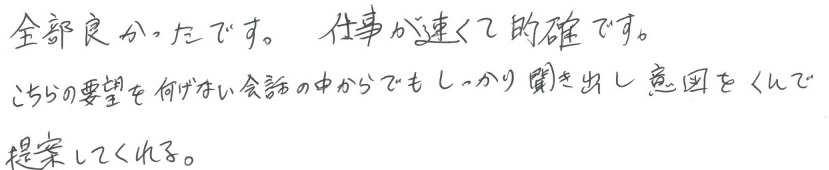 全部良かったです。 仕事が速くて的確です。
こちらの要望を何げない会話の中からでもしっかり聞き出し意図をくんで
提案してくれる。